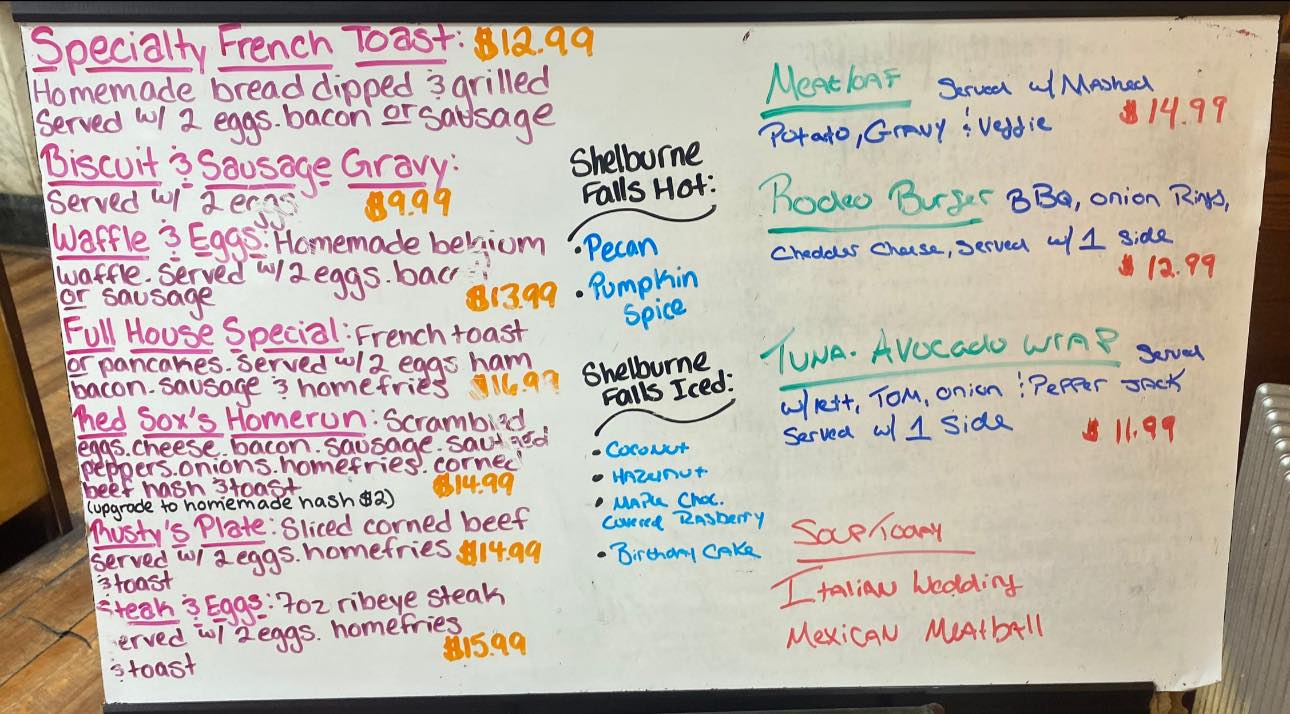 Specialty French Toast: $12.99
Homemade bread dipped & grilled
Served w/ 2 eggs. bacon or sausage
Biscuit & Sausage Gravy:
Served w/ 2 eggs $9.99
Waffle & Eggs: Homemade belgium
waffle. Served w/ 2 eggs. bac
or sausage $13.99
Full House Special: French toast
or pancakes. Served w/ 2 eggs ham
bacon. sausage & homefries $16.99
Red Sox's Homerun: Scrambled
eggs. cheese. bacon. sausage. sauteed
peppers. onions. homefries. corned
beef hash & toast $14.99
(upgrade to homemade hash $2)
Rusty's Plate: Sliced corned beef
served w/ 2 eggs. homefries $14.99
& toast
Steak & Eggs: 7oz ribeye steak
erved w/ 2 eggs. homefries
& toast $15.99
Shelburne
Falls Hot:
• Pecan
• Pumpkin
Spice
Shelburne
Falls Iced:
• Coconut
• Hazelnut
• Maple Choc.
Covered Rasberry
• Birthday Cake
Meatloaf Served w/ Mashed
Potato, Gravy & Veggie $14.99
Rodeo Burger BBQ, onion Rings,
Cheddar Cheese, Served w/ 1 side
$12.99
Tuna. Avocado Wrap Served
w/ lett, Tom, onion & Pepper Jack
Served w/ 1 Side $11.99
Soup Today
Italian Wedding
Mexican Meatball